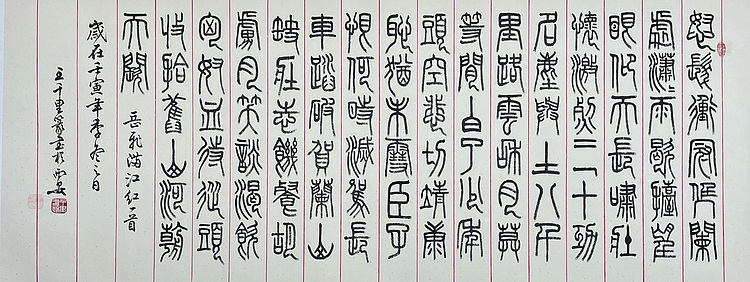 怒髮衝冠凭闌
處瀟々雨歇擡望
眼仰天長嘯壯
懷激烈三十功
名塵與土八千
里路雲和月莫
等閒白了少年
頭空悲切靖康
恥猶未雪臣子
恨何時滅駕長
車踏破賀蘭山
缺壯志飢餐胡
虜肉笑談渴飲
匈奴血待從頭
收拾舊山河朝
天闕
岳飛滿江紅一首
歲在壬寅年季冬之日
王千里篆書於西安